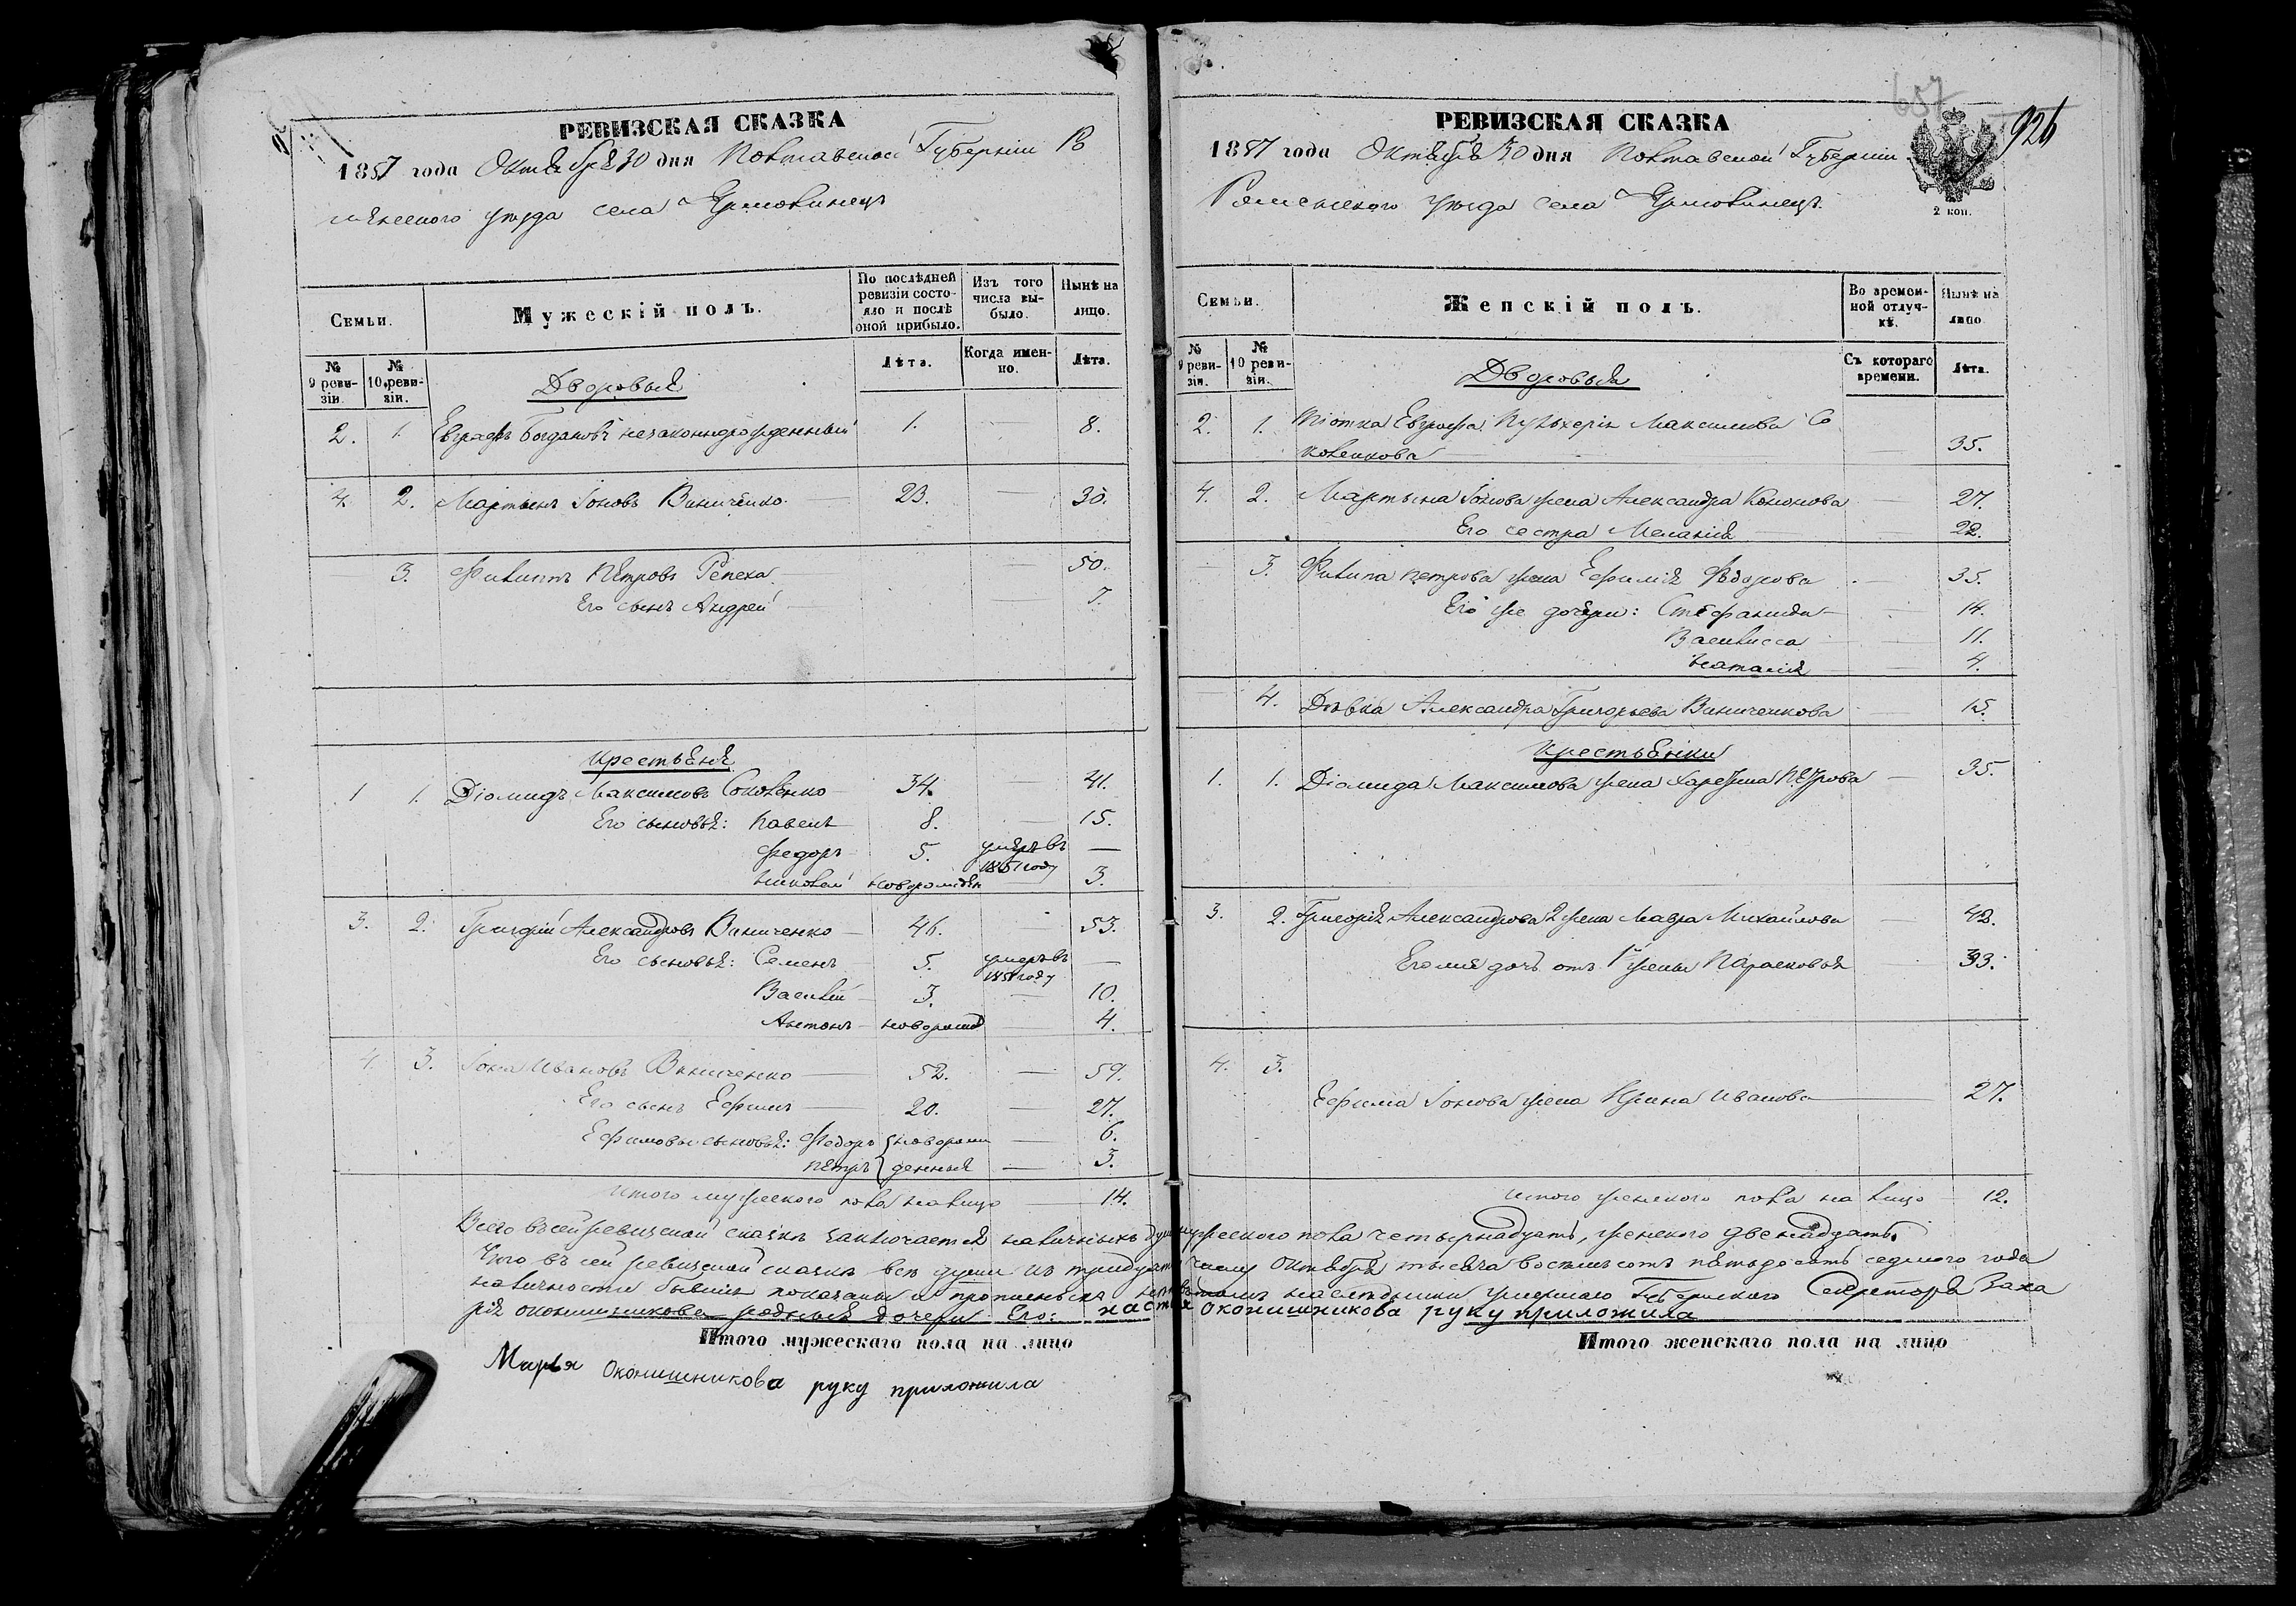 РЕВИЗСКАЯ СКАЗКА
1857 года Октября 30 дня Полтавской Губерніи Ро
менского уезда села Ярмолинецъ
Семьи.
Мужескій полъ.
По послѣдней ревизіи состояло и послѣ оной прибыло.
Изъ того числа выбыло.
Нынѣ на лицо.
№ 9 ревизіи.
№ 10 ревизіи.
Лѣта.
Когда именно.
Лѣта.
Дворовыя
2. 1. Евграфъ Богдановъ незаконнорожденный 1. — 8.
4. 2. Мартынъ Іоновъ Виниченко 23. — 30.
— 3. Филиппъ Петровъ Репеха — — 50.
Его сынъ Андрей — 7.
Крестьяня
1 1. Діомидъ Максимовъ Соколенко — 34. — 41.
Его сыновья: Павелъ 8. — 15.
Федоръ 5. умеръ въ 1851 году —
Николай новорожден 3.
3. 2. Григорій Александровъ Виниченко — 46. 53.
Его сыновья: Семенъ 5. умеръ въ 1851 году —
Василій 3. — 10.
Антонъ — новорожд — 4.
4. 3. Іона Ивановъ Виниченко — 52. — 59.
Его сынъ Ефимъ — 20. — 27.
Ефимовы сыновья: Федоръ новорож — 6.
Петръ денныя — 3.
Итого мужеского пола на лицо — 14.
657
926
РЕВИЗСКАЯ СКАЗКА
1857 года Октября 30 дня Полтавской Губерніи
Роменского уезда села Ярмолинецъ.
2 коп.
Семьи.
Женскій полъ.
Во временной отлучкѣ.
Нынѣ на лицо
№ 9 ревизіи.
№ 10 ревизіи.
Съ котораго времени.
Лѣта.
Дворовыя
2. 1. Тіотка Евграфа Пульхерія Максимова Со
коленкова — 35.
4. 2. Мартына Іонова жена Александра Кононова — 27.
Его сестра Меланія — 22.
3. Филипа Петрова жена Ефимія Федорова — 35.
Его же дочери: Стефанида — 14.
Василисса — 11.
Наталія — 4.
— 4. Дѣвка Александра Григорьева Виниченкова — 15.
Крестьянки
1. 1. Діомида Максимова жена Петрова — 35.
3. 2. Григорія Александрова 2 жена Мавра Михайлова — 42.
дочь отъ 1й жены Парасковья — 33.
4. 3.
Ефима Іонова жена Ирина Иванова — 27.
Итого женского пола на лицо — 12.
Всего въ сей ревизской сказкѣ заключается наличныхъ душъ мужеского пола четырнадцать, женского двенадцать.
Что въ сей ревизской сказкѣ всѣ души къ тридцатому числу Октября тысяча восемьсотъ пятьдесятъ седмого года
наличности бывшія показаны и прописныхъ наследники умершаго Губернского Секретаря Заха
рія Оконишникова родныя дочери Его: Настя Оконишникова руку приложила
Итого мужескаго пола на лицо
Итого женскаго пола на лицо
Марья Оконишникова руку приложила